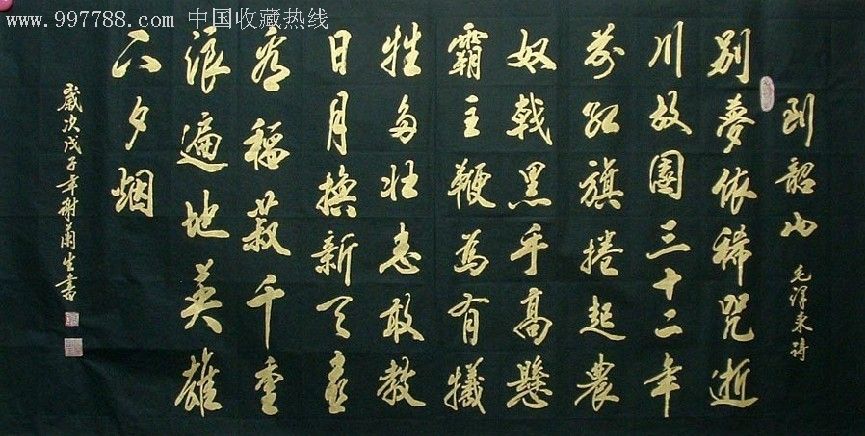 www.997788.com 中国收藏热线
到韶山 毛泽東诗
别夢依稀咒逝
川故園三十二年
前红旗捲起農
奴戟黑手高懸
霸主鞭為有犧
牲多壮志敢教
日月换新天喜
看稻菽千重
浪遍地英雄
下夕烟
歲次戊子年謝蘭生書